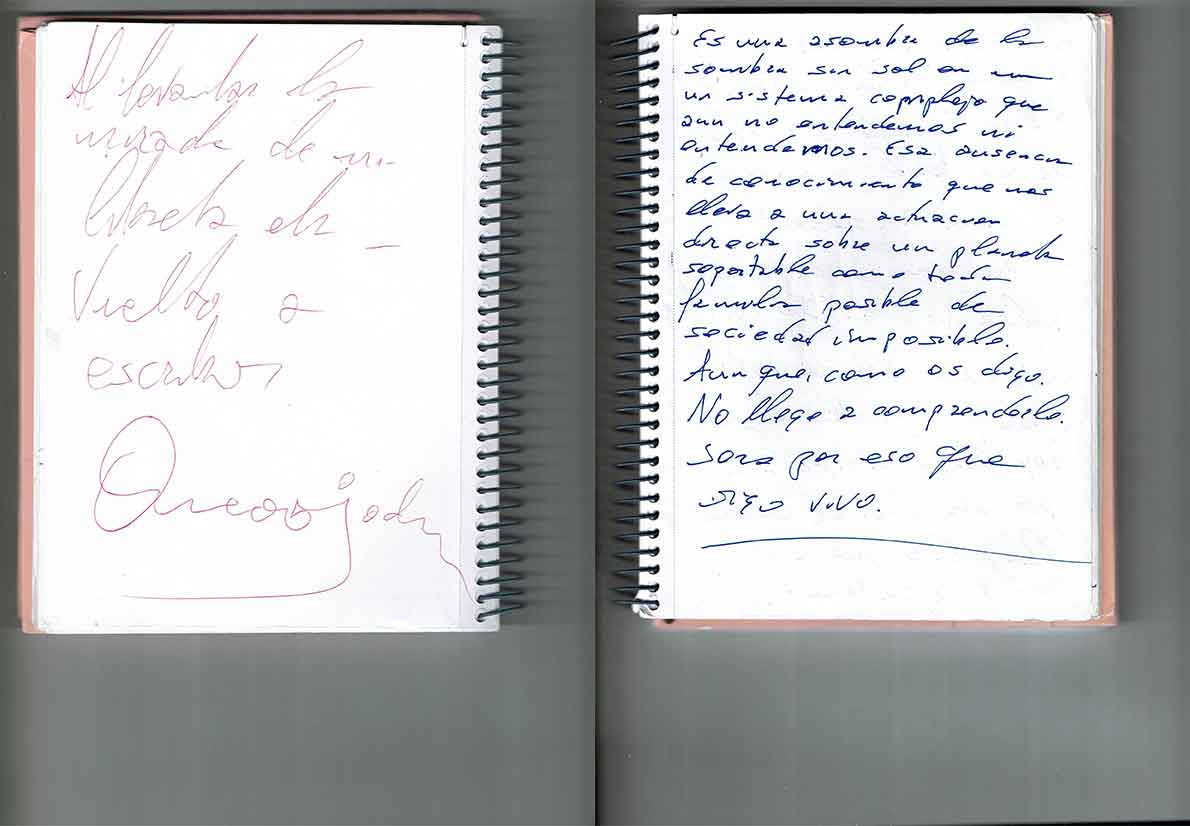 Al levantar la
mirada de mi
libreta ella
vuelto a
escribir
Es una asombra de la
sombra sin sol en un
un sistema complejo que
aun no entendemos ni
entenderemos. Esa ausencia
de conocimiento que nos
lleva a una actuacion
directa sobre un planeta
soportable como toda
formula posible de
sociedad imposible.
Aunque, como os digo.
No llego a comprenderlo.
Sera por eso que
sigo vivo.